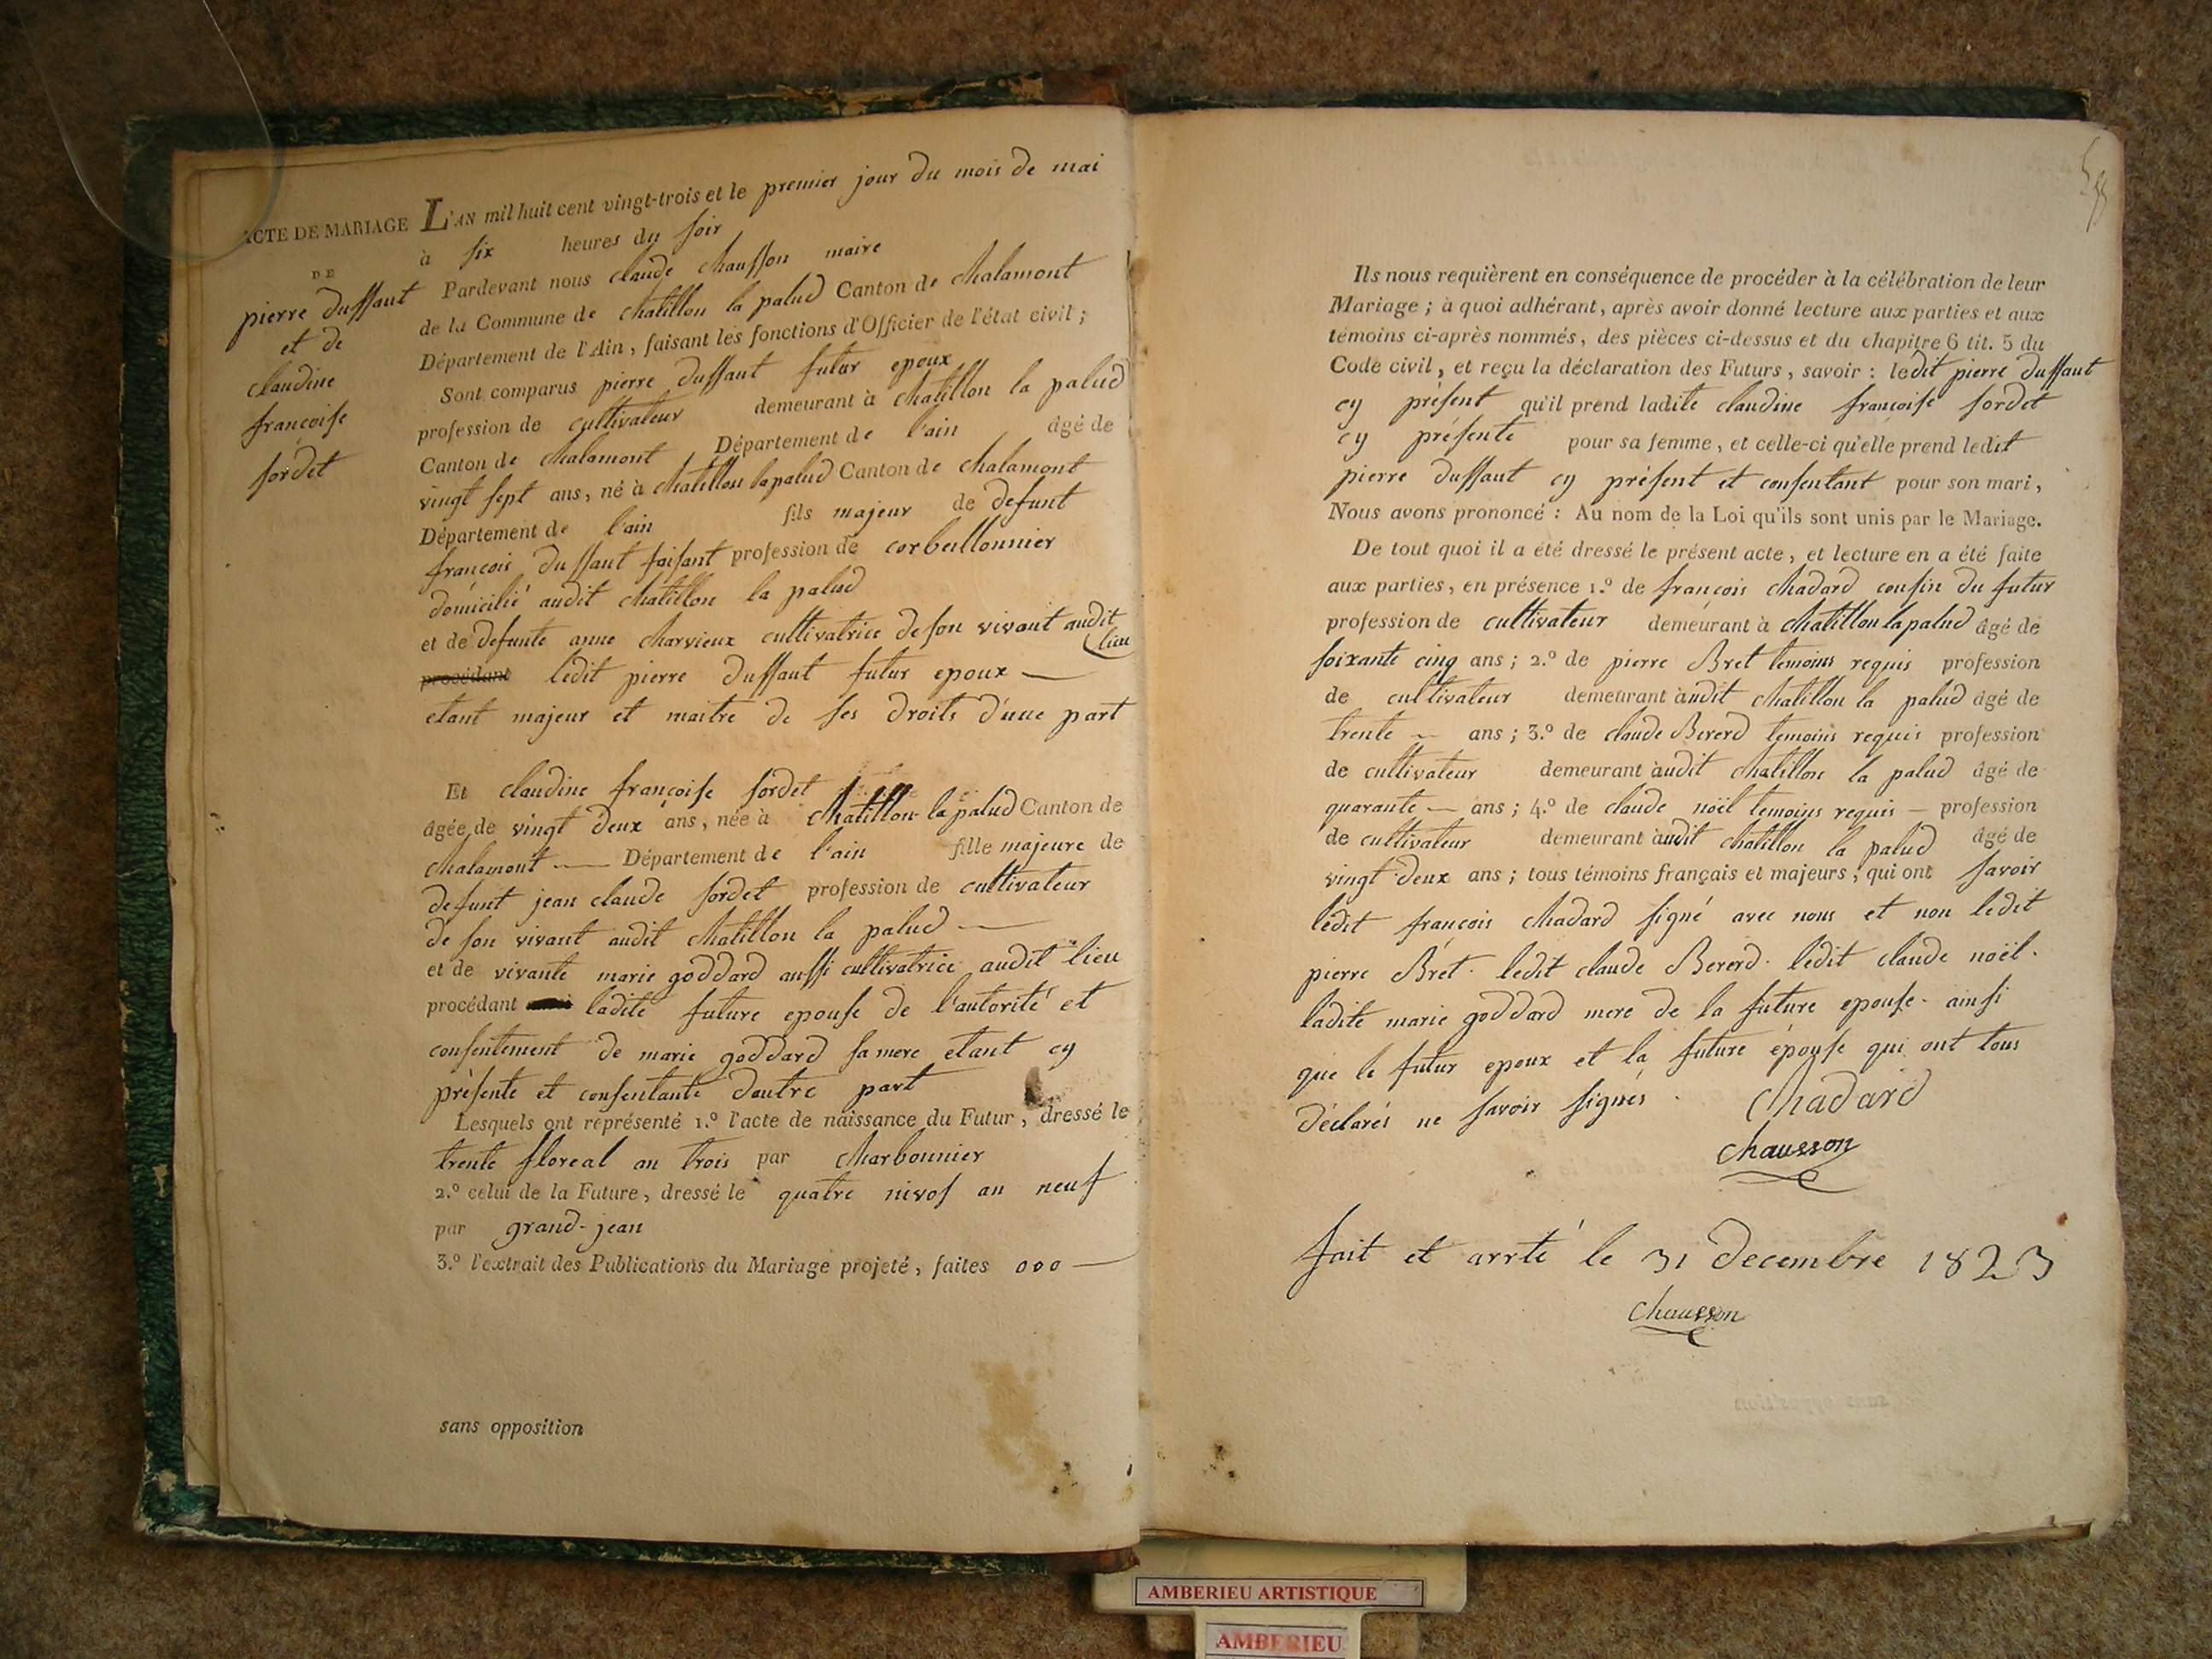 ACTE DE MARIAGE
DE
pierre duffaut
et de
claudine
francoise
fordet
L'AN mil huit cent vingt-trois et le premier jour du mois de mai
à six heures du soir
Pardevant nous claude chausson maire
de la Commune de chatillon la palud Canton de chalamont
Département de l'Ain, faisant les fonctions d'Officier de l'état civil;
Sont comparus pierre duffaut futur epoux
profession de cultivateur demeurant à chatillon la palud
Canton de chalamont Département de l'ain âgé de
vingt sept ans, né à chatillon lapalud Canton de chalamont
Département de l'ain fils majeur de defunt
francois duffaut faisant profession de corbeillonnier
domicilié audit chatillon la palud
et de defunte anne charvieux cultivatrice de son vivant audit
lieu
procédant ledit pierre duffaut futur epoux
etant majeur et maitre de ses droits d'une part
Et claudine françoise fordet
âgée de vingt deux ans, née à chatillon la palud Canton de
chalamont Département de l'ain fille majeure de
defunt jean claude fordet profession de cultivateur
de son vivant audit chatillon la palud
et de vivante marie goddard aussi cultivatrice audit lieu
procédant ladite future epouse de l'autorité et
consentement de marie goddard sa mere etant cy
présente et consentante dautre part
Lesquels ont représenté 1.º l'acte de naissance du Futur, dressé le
trente floreal an trois par charbonnier
2.º celui de la Future, dressé le quatre nivos an neuf
par grand-jean
3.º l'extrait des Publications du Mariage projeté, faites 000
sans opposition
Ils nous requièrent en conséquence de procéder à la célébration de leur
Mariage; à quoi adhérant, après avoir donné lecture aux parties et aux
témoins ci-après nommés, des pièces ci-dessus et du chapitre 6 tit. 5 du
Code civil, et reçu la déclaration des Futurs, savoir: ledit pierre duffaut
cy présent qu'il prend ladite claudine francoise fordet
cy présente pour sa femme, et celle-ci qu'elle prend ledit
pierre duffaut cy présent et consentant pour son mari,
Nous avons prononcé: Au nom de la Loi qu'ils sont unis par le Mariage.
De tout quoi il a été dressé le présent acte, et lecture en a été faite
aux parties, en présence 1.º de françois chadard cousin du futur
profession de cultivateur demeurant à chatillon la palud âgé de
soixante cinq ans; 2.º de pierre Bret temoins requis profession
de cultivateur demeurant audit chatillon la palud âgé de
trente ans; 3.º de claude Bererd temoins requis profession
de cultivateur demeurant audit chatillon la palud âgé de
quarante ans; 4.º de claude noël temoins requis profession
de cultivateur demeurant audit chatillon la palud âgé de
vingt deux ans; tous témoins français et majeurs, qui ont savoir
ledit francois chadard signé avec nous et non ledit
pierre Bret. ledit claude Bererd. ledit claude noël.
ladite marie goddard mere de la future epouse. ainsi
que le futur epoux et la future épouse qui ont tous
déclarés ne savoir signés.
chadard
chausson
fait et arrté le 31 decembre 1823
chausson
AMBERIEU ARTISTIQUE
AMBERIEU